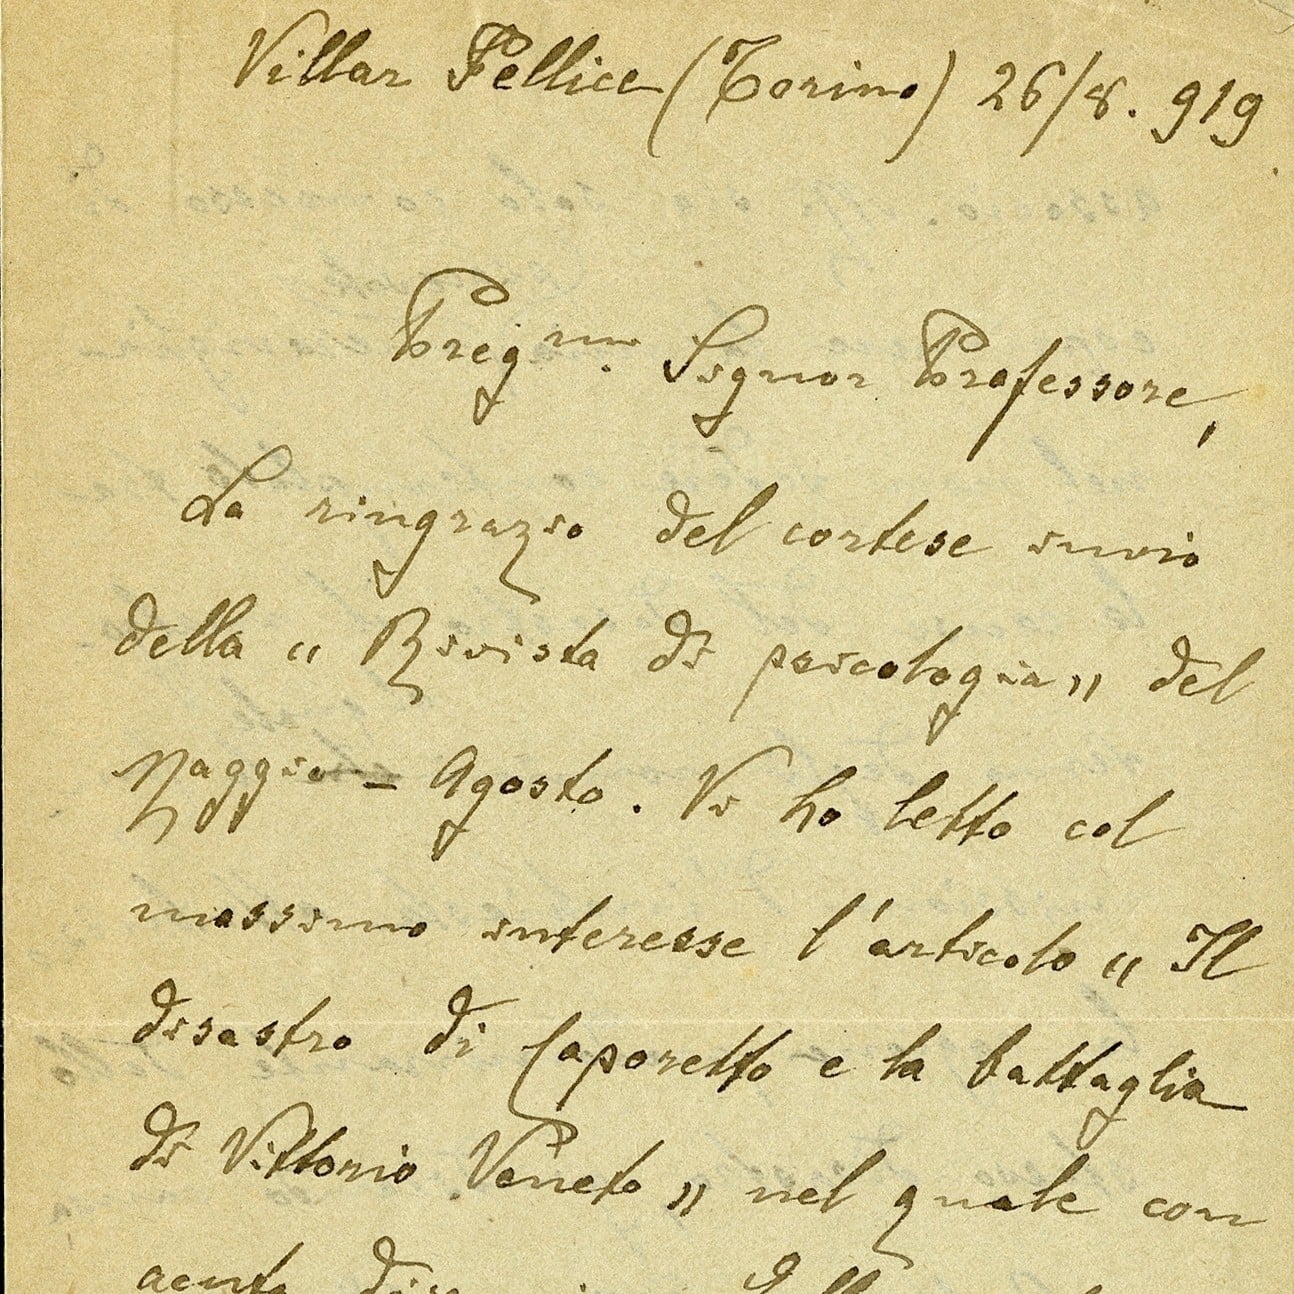 Villar Pellice (Torino) 26/8. 919
Preg.mo Signor Professore,
La ringrazio del cortese invio
della “ Rivista di psicologia „ del
Maggio - Agosto. Vi ho letto col
massimo interesse l'articolo “ Il
disastro di Caporetto e la battaglia
di Vittorio Veneto „ nel quale con